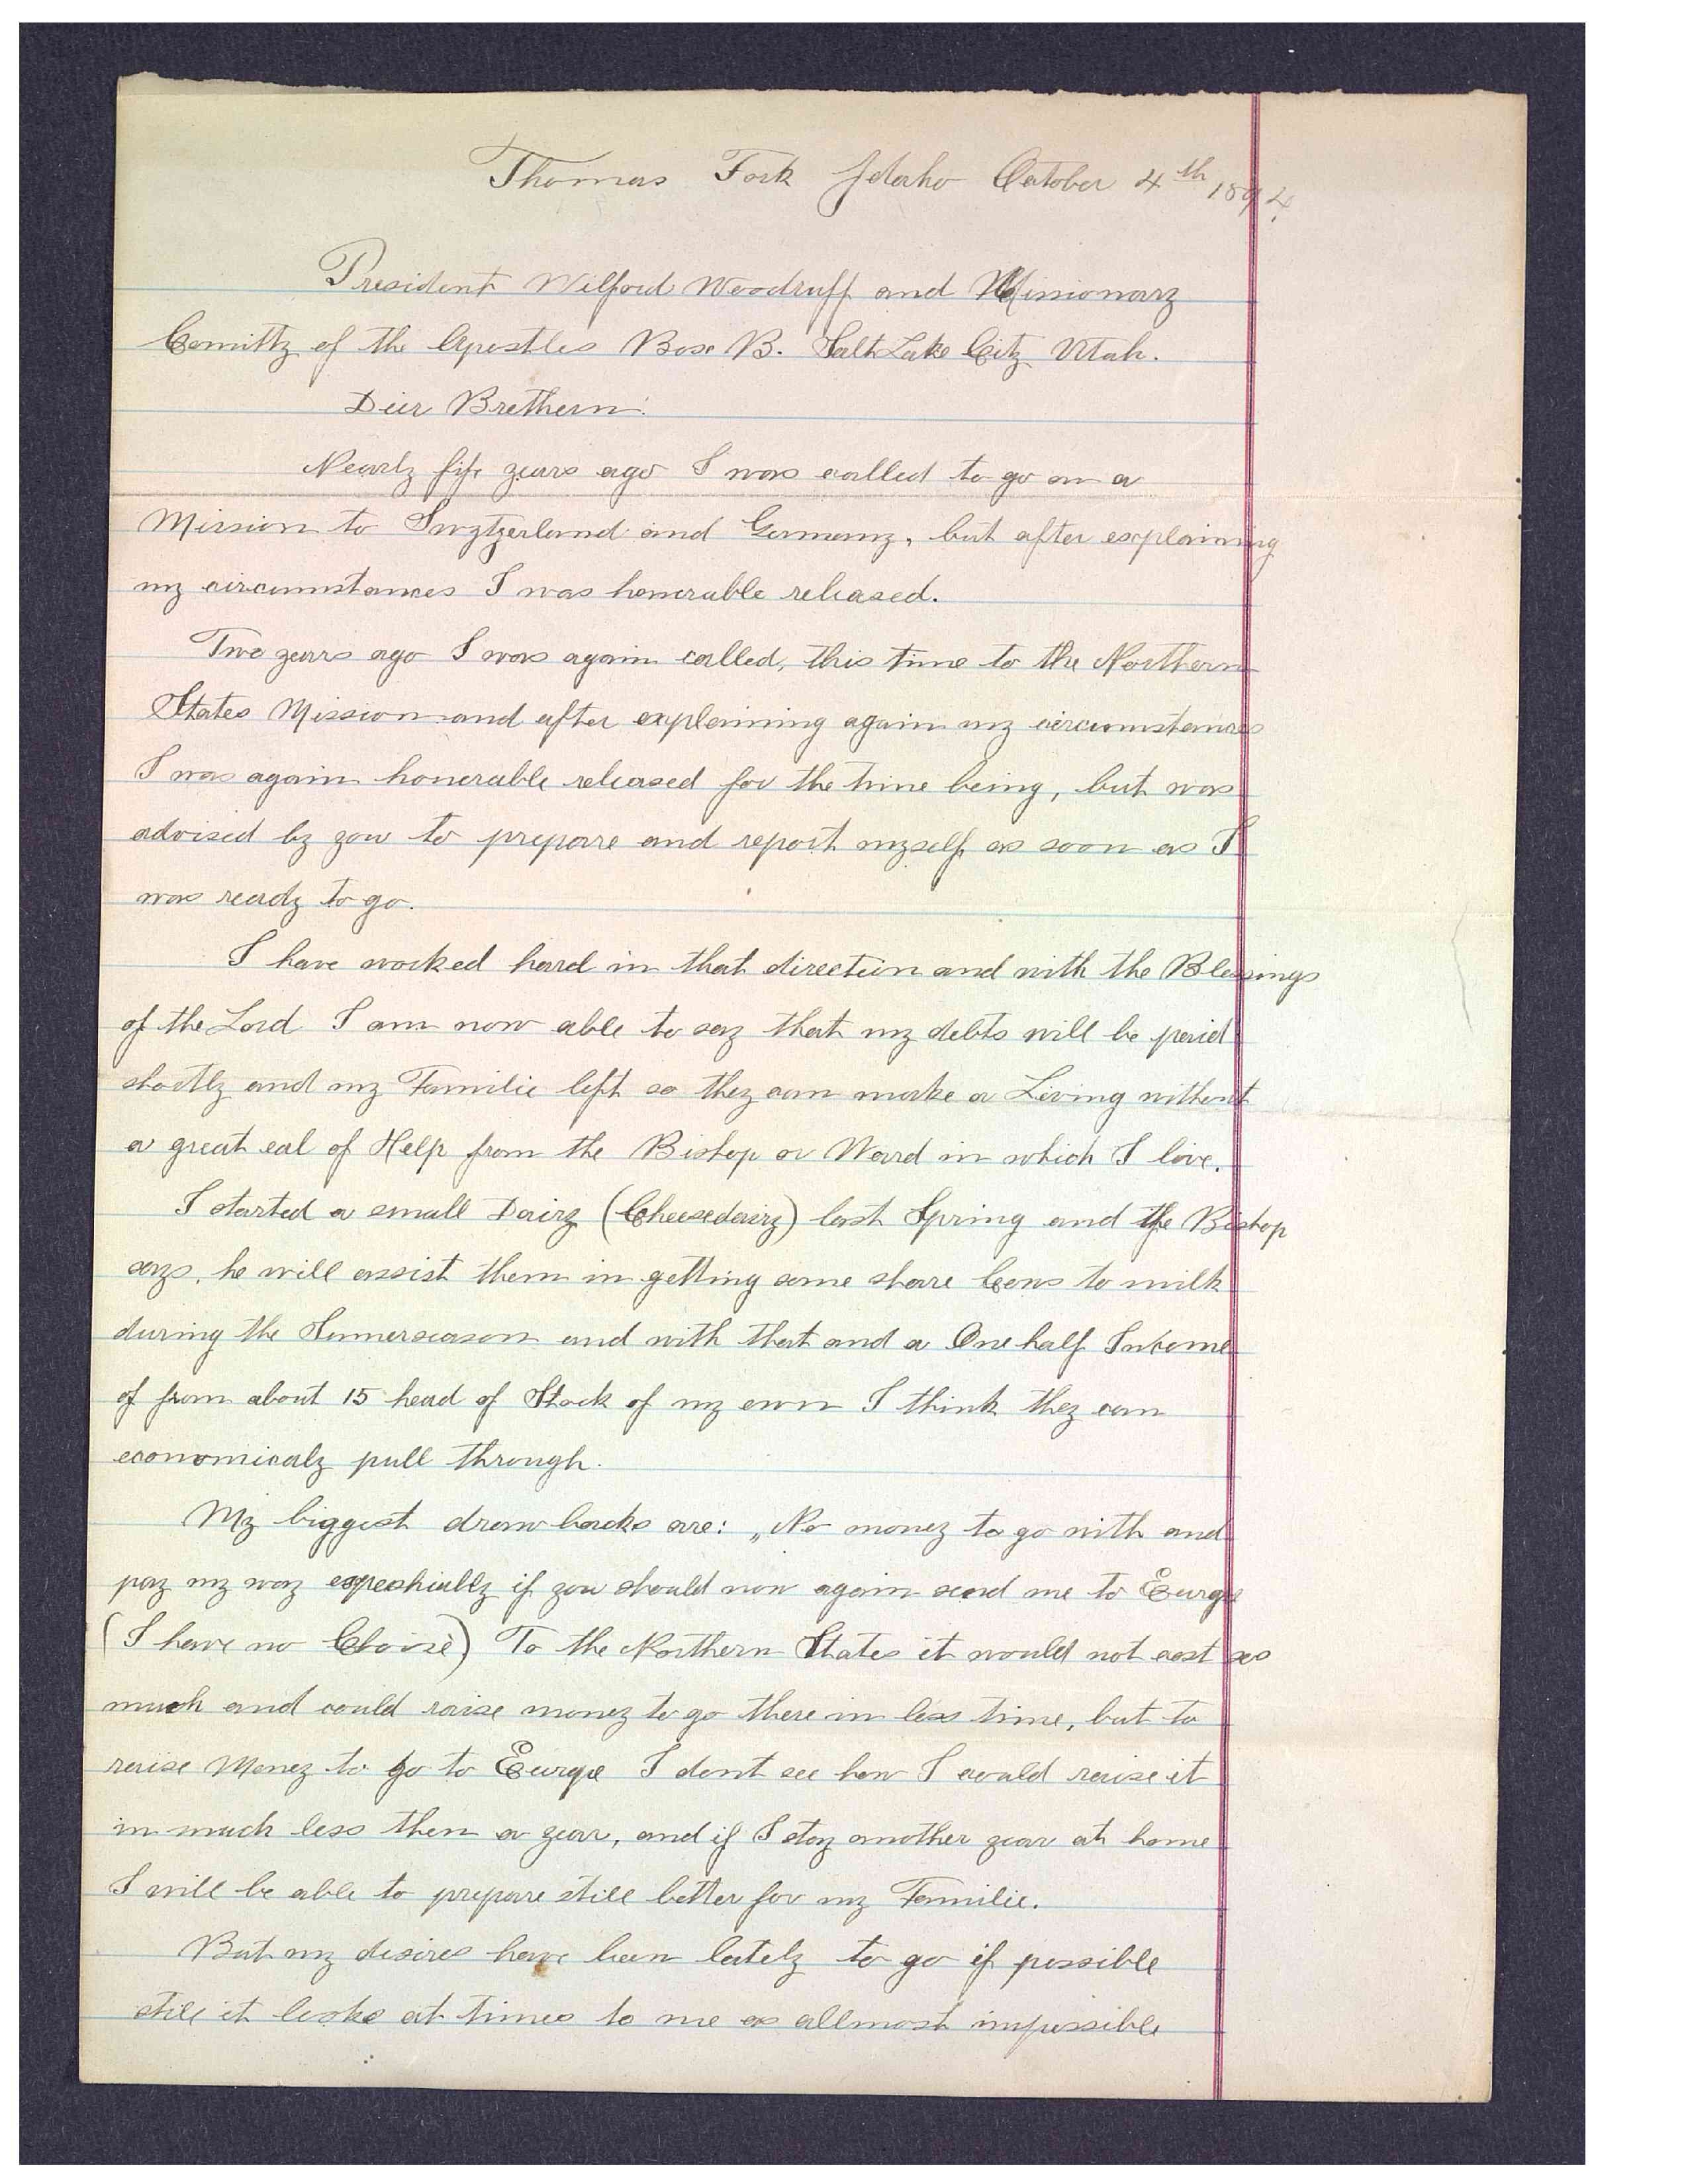 Thomas Fork Idaho October 4th 1894.
President Wilford Woodruff and Missionary
Comitty of the Apostles Box B. Salt Lake City Utah.
Deer Brethern:
Nearly fife years ago I was called to go on a
Mission to Swytzerland and Germany, but after explaining
my circumstances I was honerable released.
Two years ago I was again called, this time to the Northern
States Mission and after explaining again my circumstances
I was again honerable released for the time being, but was
advised by you to prepare and report myself as soon as I
was ready to go.
I have worked hard in that direction and with the Blessings
of the Lord I am now able to say that my debts will be paid
shortly and my Familie left so they can make a Living without
a great eal of Help from the Bishop or Ward in which I live.
I started a small Dairy (Cheesedairy) last Spring and the Bishop
says, he will assist them in getting some share Cows to milk
during the Sumerseason and with that and a One half Income
of from about 15 head of Stock of my own I think they can
economicaly pull through.
My biggest draw backs are: „No money to go with and
pay my way espeshially if you should now again send me to Europe
(I have no Choise) To the Northern States it would not cost so
much and could raise money to go there in less time, but to
raise Money to go to Europe I dont see how I could raise it
in much less then a year, and if I stay another year at home
I will be able to prepare still better for my Familie.
But my desires have been lately to go if possible
still it looks at times to me as allmost impossible